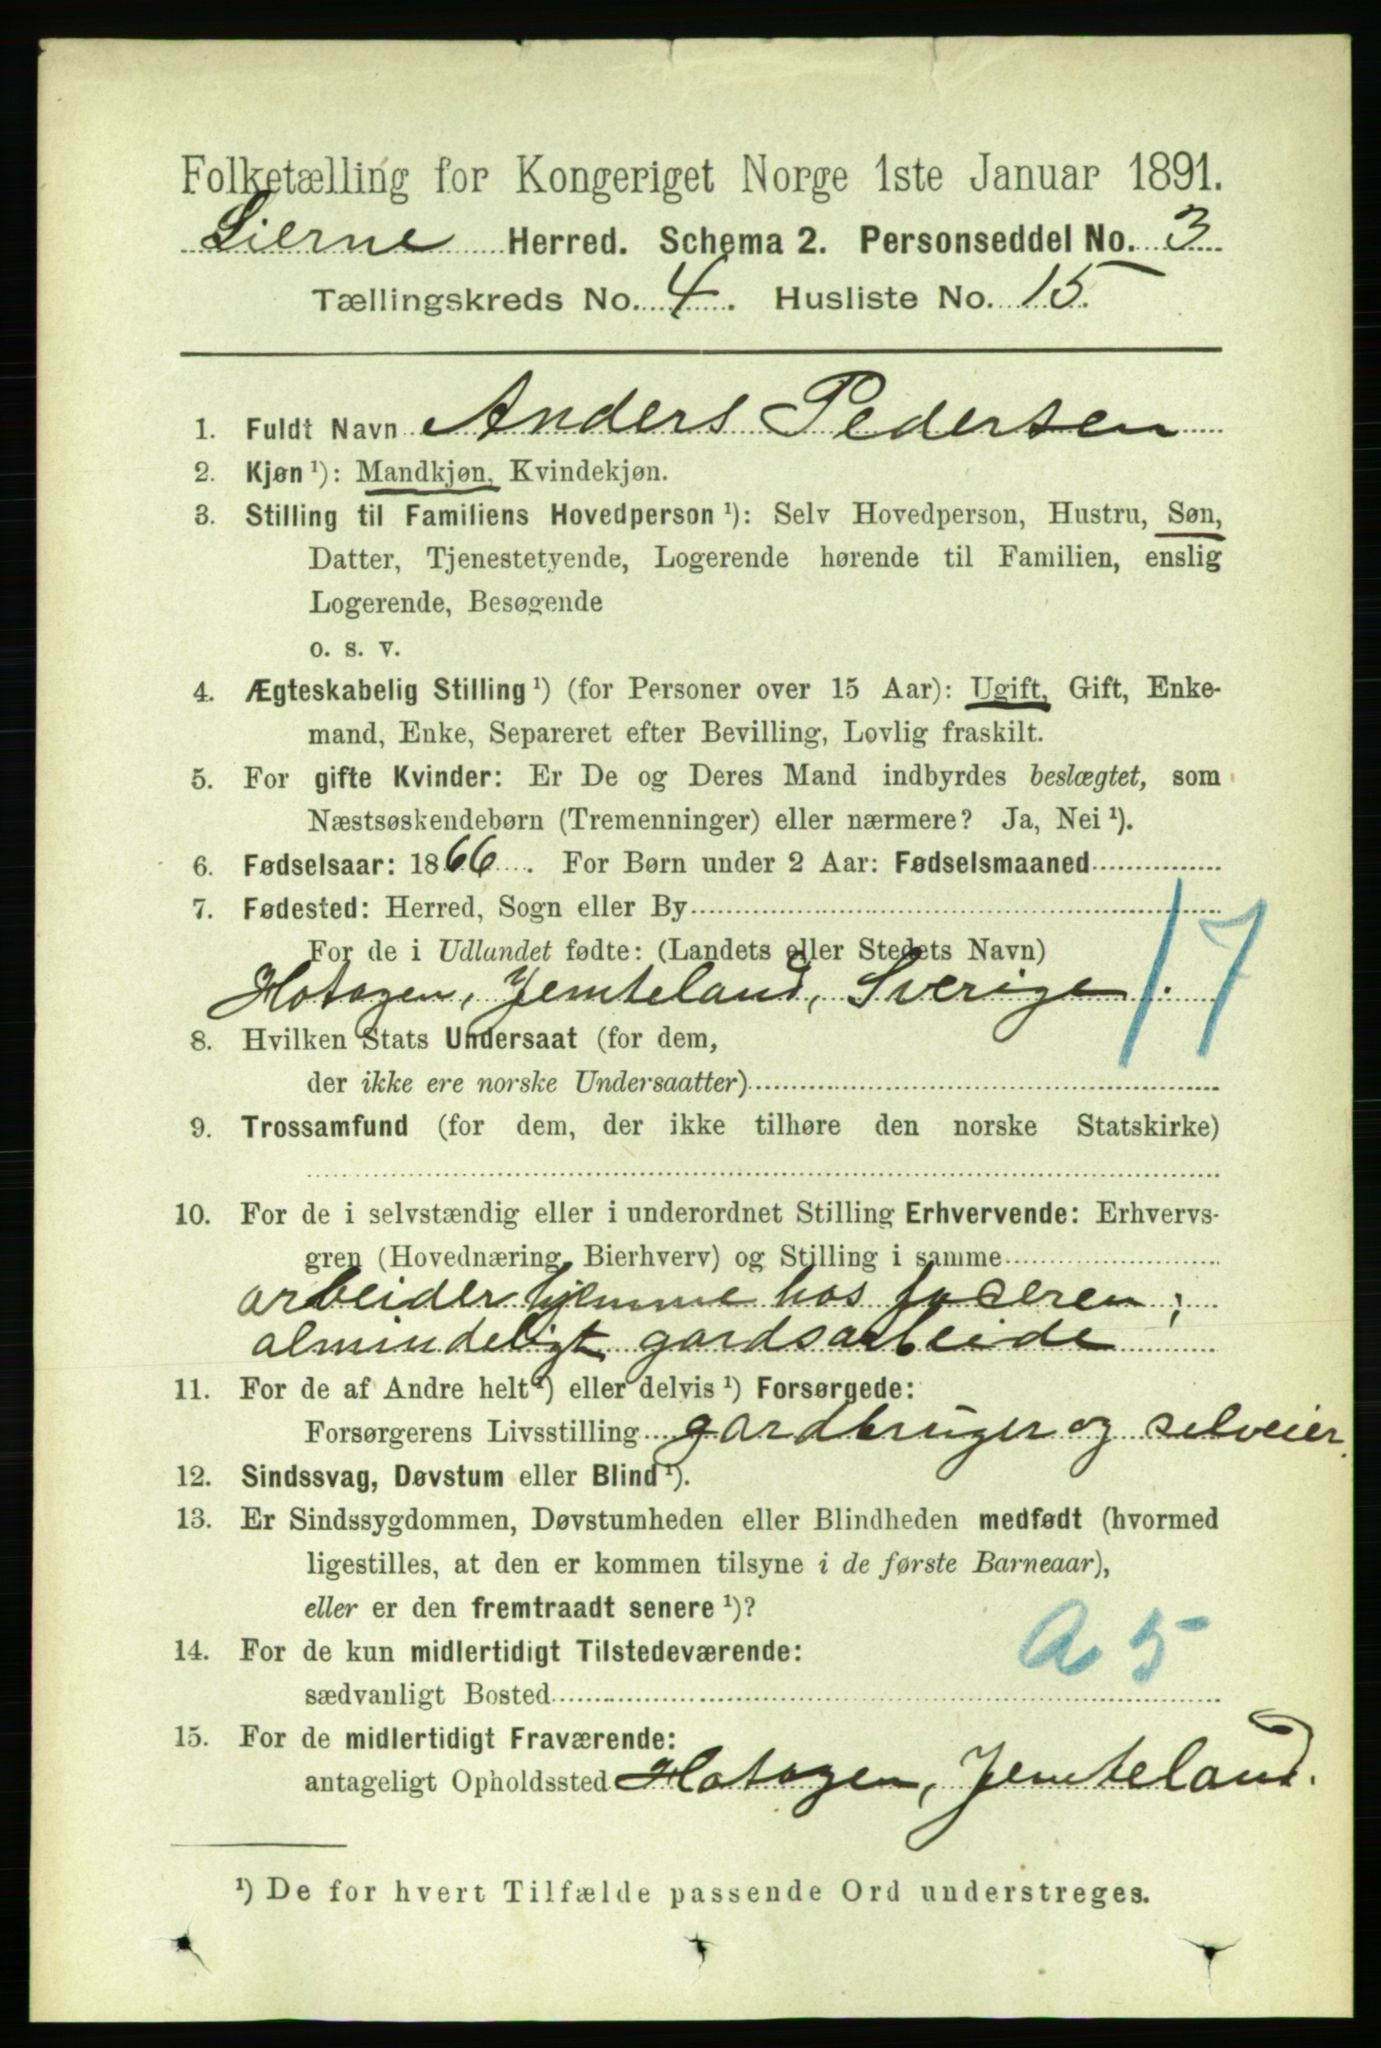 Folketælling for Kongeriget Norge 1ste Januar 1891.
Lierne Herred. Schema 2. Personseddel No. 3
Tællingskreds No. 4. Husliste No. 15.
1. Fuldt Navn Anders Pedersen
2. Kjøn ¹): Mandkjøn, Kvindekjøn.
3. Stilling til Familiens Hovedperson ¹): Selv Hovedperson, Hustru, Søn,
Datter, Tjenestetyende, Logerende hørende til Familien, enslig
Logerende, Besøgende
o. s. v.
4. Ægteskabelig Stilling ¹) (for Personer over 15 Aar): Ugift, Gift, Enke-
mand, Enke, Separeret efter Bevilling, Lovlig fraskilt.
5. For gifte Kvinder: Er De og Deres Mand indbyrdes beslægtet, som
Næstsøskendebørn (Tremenninger) eller nærmere? Ja, Nei ¹).
6. Fødselsaar: 1866. For Børn under 2 Aar: Fødselsmaaned
7. Fødested: Herred, Sogn eller By
For de i Udlandet fødte: (Landets eller Stedets Navn)
Hotagen, Jemteland, Sverige. 17
8. Hvilken Stats Undersaat (for dem,
der ikke ere norske Undersaatter)
9. Trossamfund (for dem, der ikke tilhøre den norske Statskirke)
10. For de i selvstændig eller i underordnet Stilling Erhvervende: Erhvervs-
gren (Hovednæring, Bierhverv) og Stilling i samme
arbeider hjemme hos faderen;
almindeligt gardsarbeide
11. For de af Andre helt ¹) eller delvis ¹) Forsørgede:
Forsørgerens Livsstilling gardbruger og selveier.
12. Sindssvag, Døvstum eller Blind ¹).
13. Er Sindssygdommen, Døvstumheden eller Blindheden medfødt (hvormed
ligestilles, at den er kommen tilsyne i de første Barneaar),
eller er den fremtraadt senere ¹)?
a 5
14. For de kun midlertidigt Tilstedeværende:
sædvanligt Bosted
15. For de midlertidigt Fraværende:
antageligt Opholdssted Hotagen, Jemteland.
¹) De for hvert Tilfælde passende Ord understreges.